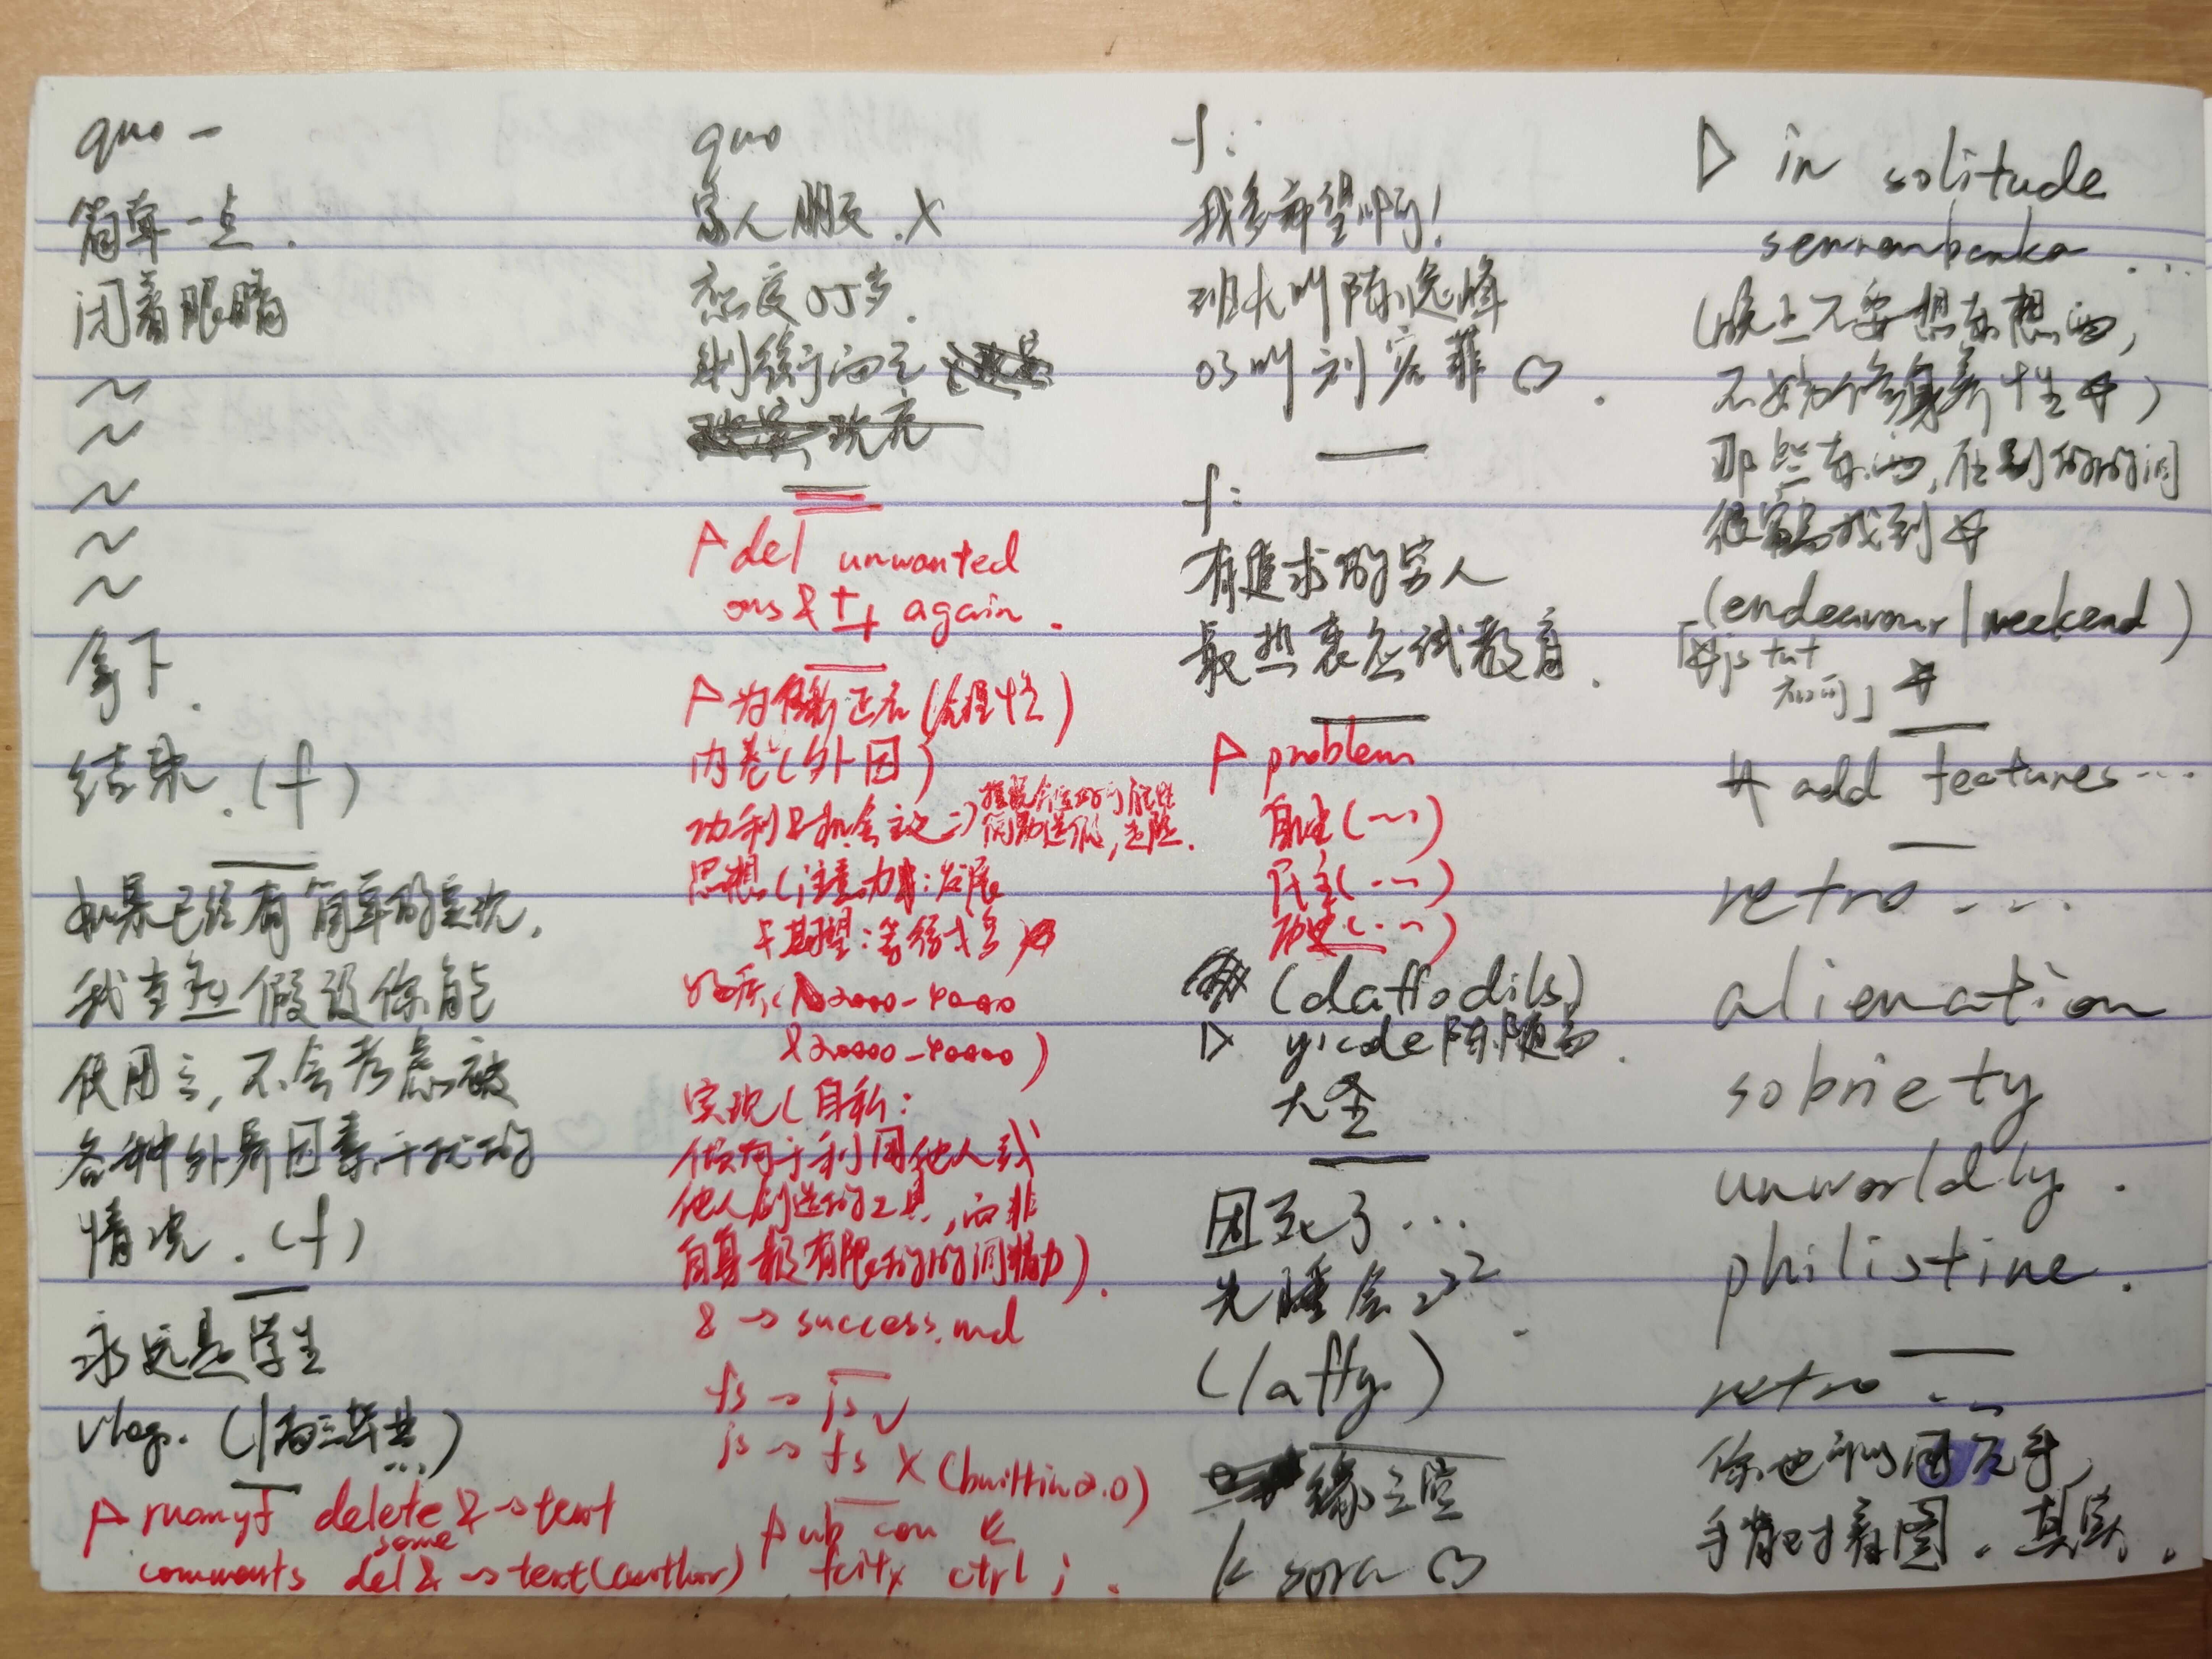 quo -
简单一点.
闭着眼睛
~
~
~
~
~
拿下.
结束.(f)
如果已经有简单的实现,
我直觉假设你能
使用之,不会考虑被
各种外界因素干扰的
情况.(f)
永远是学生
vlog. (高三毕业...)
ruanyf delete & → text
some
comments del & → text(author)
quo
家人朋友.X
态度
则徐子西之
玩充
del unwanted
ans & again.
为 正名(合理性)
内卷(外因)
功利&机会主义
思想(注意力:发展
与期望:
2000-4000
& 20000-40000)
实现(自私:
倾向于利用他人或
他人创造的工具,而非
自身极有限的时间精力).
& → success.md
fs → js ✓
js → fs X (builtin 2.0)
fcitx ctrl ;.
f:
我多希望啊!
班长叫陈逸峰
03叫刘宏菲♡.
f:
有追求的穷人
最热衷应试教育.
problem
自由(...)
民主(...)
历史(...)
(daffodils)
yicode陈随易.
大圣
困死了...
先睡会
(laffy)
缘之空
k sora ♡
in solitude
senrenbanka...
(晚上不要想东想西,
不妨为个修身养性 )
那些东西,在别的时间
很容易找到
(endeavour/weekend)
「js tut
」
add features...
retro...
alienation
sobriety
unworldly.
philistine.
retro...
你也
手背对着图.其实,